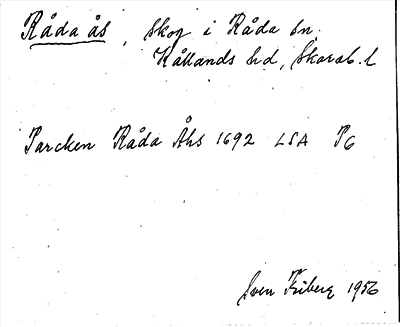 Råda ås, skog i Råda sn.
Kållands hd, Skarab. l
Parcken Råda Åhs 1692 LSA P6
Sven Friberg 1956